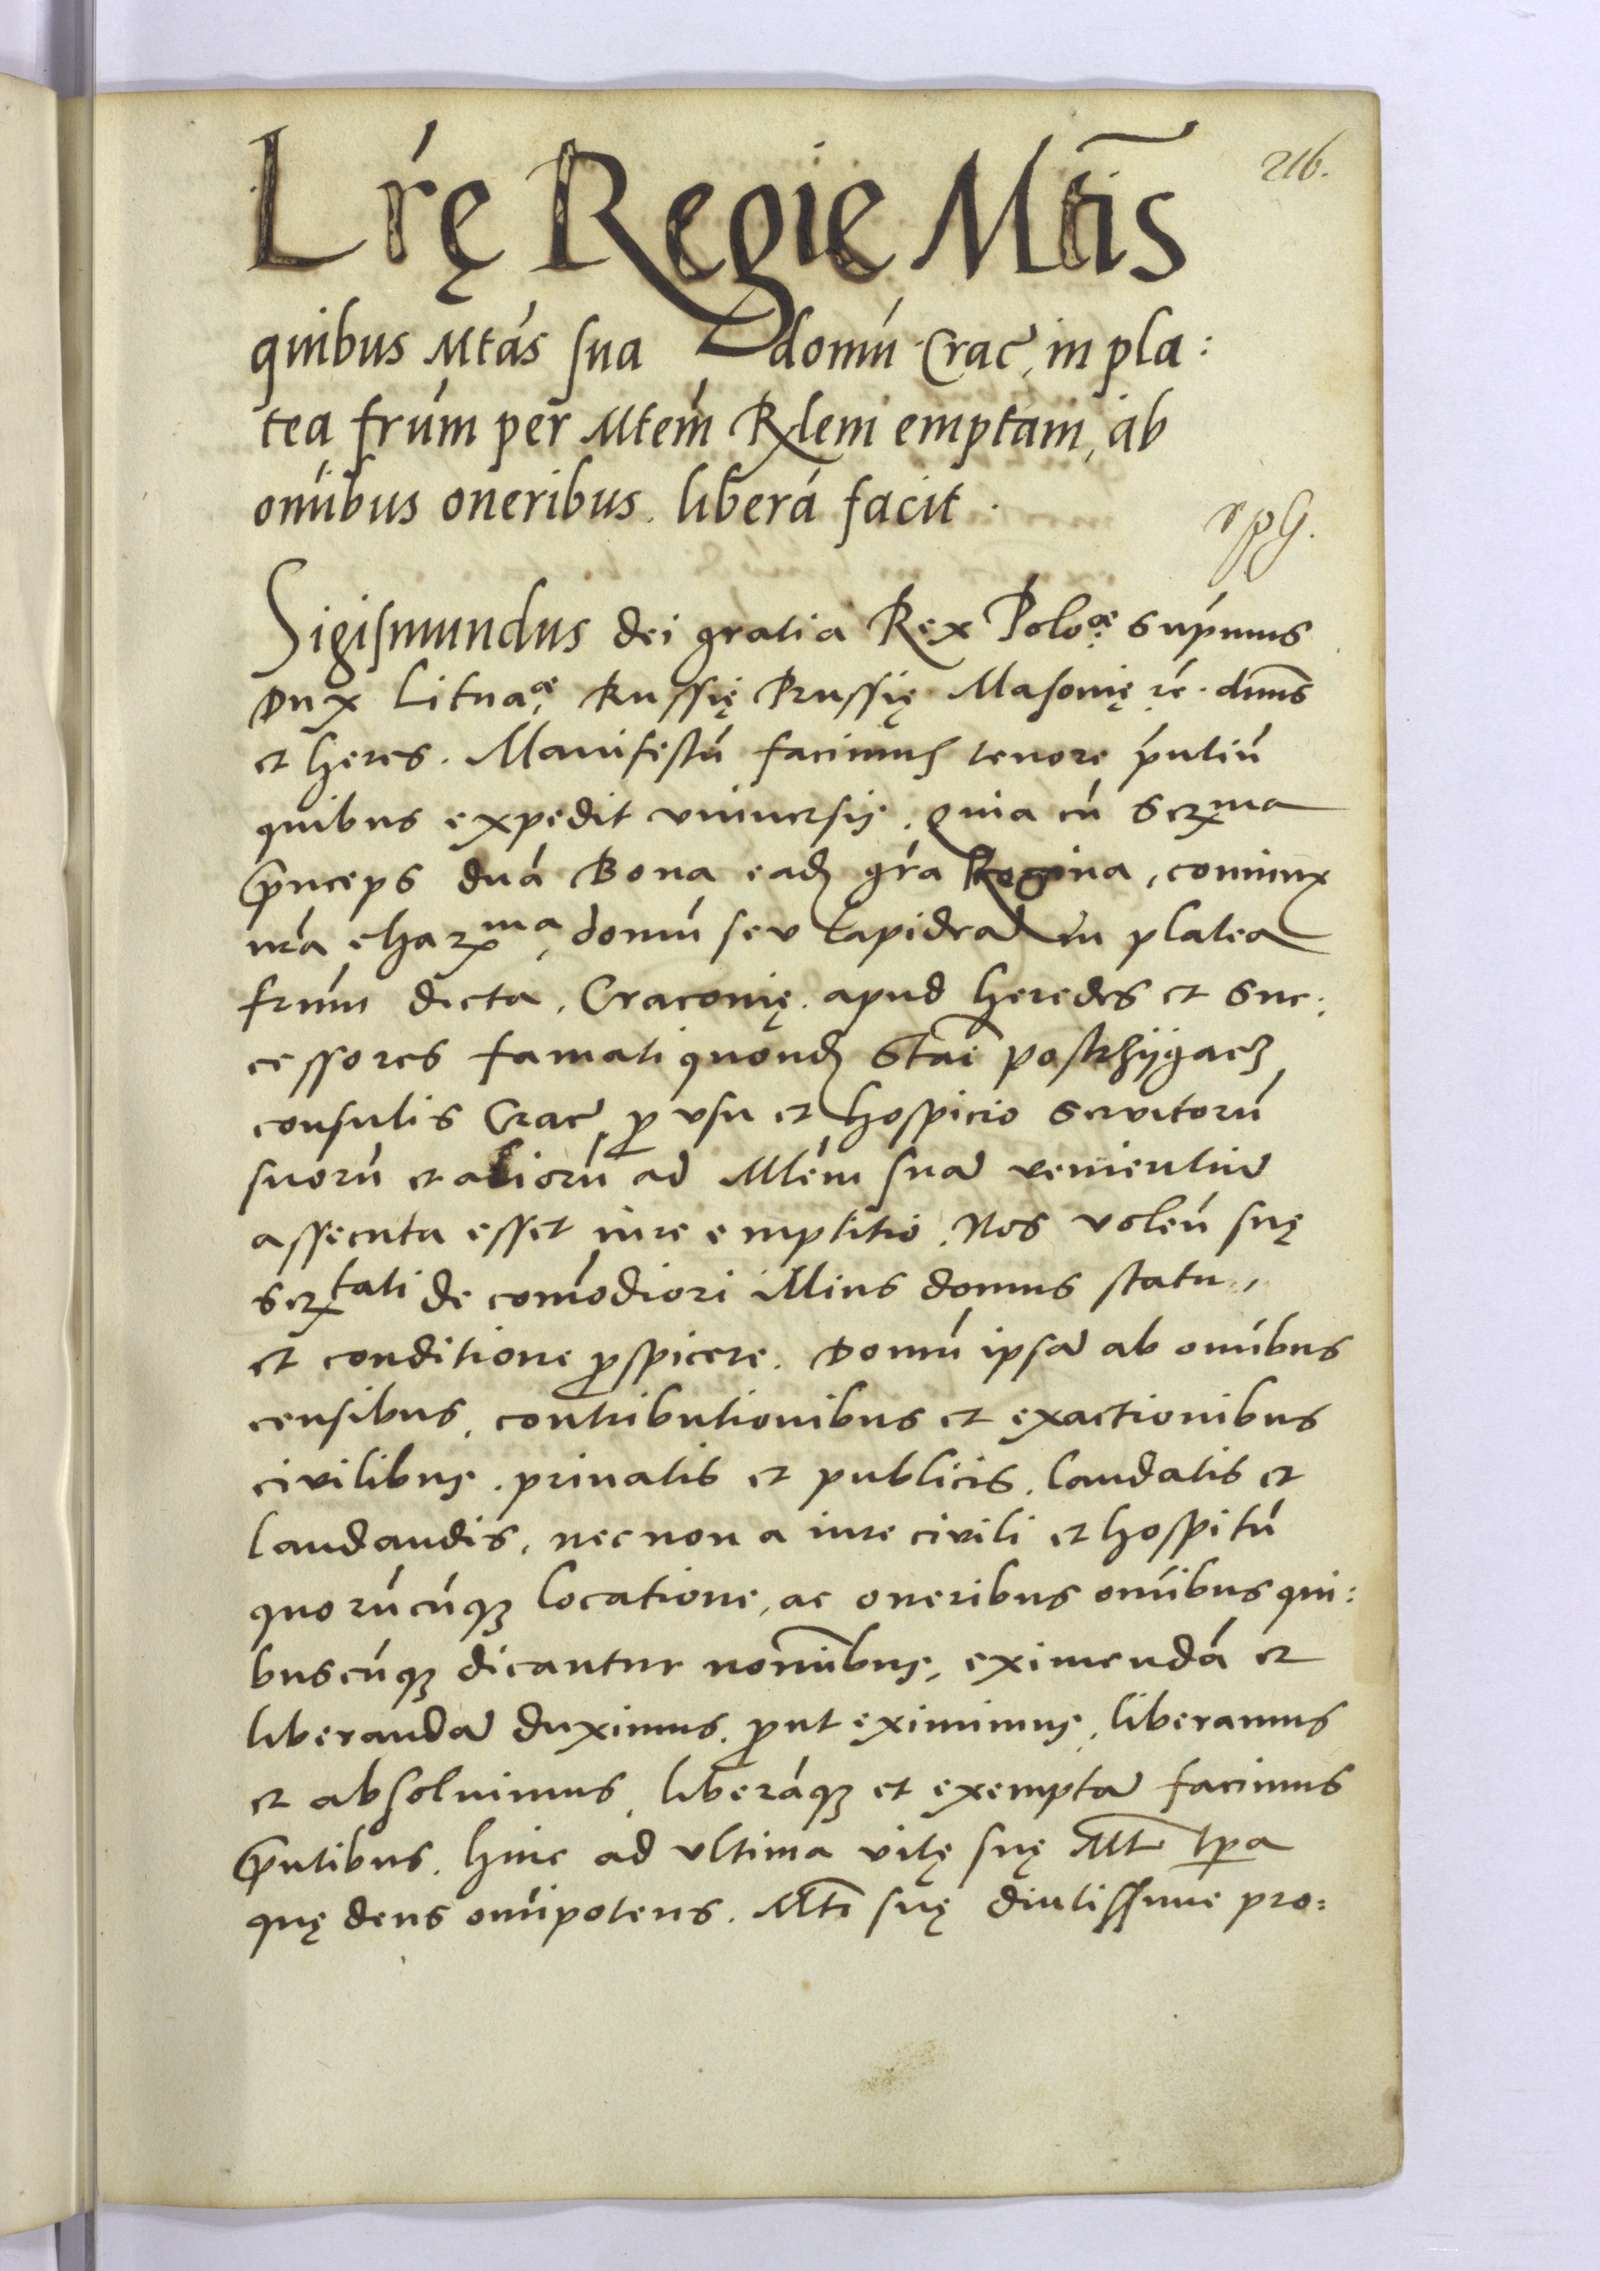 216.
Lrę Regię Mtis
quibus Mtas sua domu Crac̄, in pla:
tea frum per Mtem Rlem emptam, ab
omibus oneribus. libera facit.
Sigismundus dei gratia Rex Poloæ supmus
Dux Lituaæ, Russię Prussię Masouię rc. dnus
et heres. Manifestu facimus tenore pntiu
quibus expedit vniuersis. Quia cu Serma
Princeps dna Bona ead gra Regina, coniunx
nra charma, domu seu lapidea in platea
frum dicta. Cracouię. apud heredes et suc:
cessores famati quond Stai postrzÿgacz
consulis Crac̄, p vsu et hospicio seruitoru
suoru et alioru ad Mtem sua venientiu
assecuta esset iure emptitio. Nos volen suę
sertati de comodiori illius domus statu,
et conditione pspicere. Domu ipsa ab omibus
censibus, contributionibus et exactionibus
ciuilibus. priuatis et publicis. laudatis et
laudandis, nec non a iure ciuili et hospitu
quorucuq locatione, ac oneribus omibus qui:
buscuq dicantur nomibus, eximenda et
liberanda duximus. put eximimus, liberamus
et absoluimus, liberaq et exempta facimus
pntibus. hinc ad vltima vitę suę Mtis tpa
quę deus omipotens. Mti suę diutissime pro: